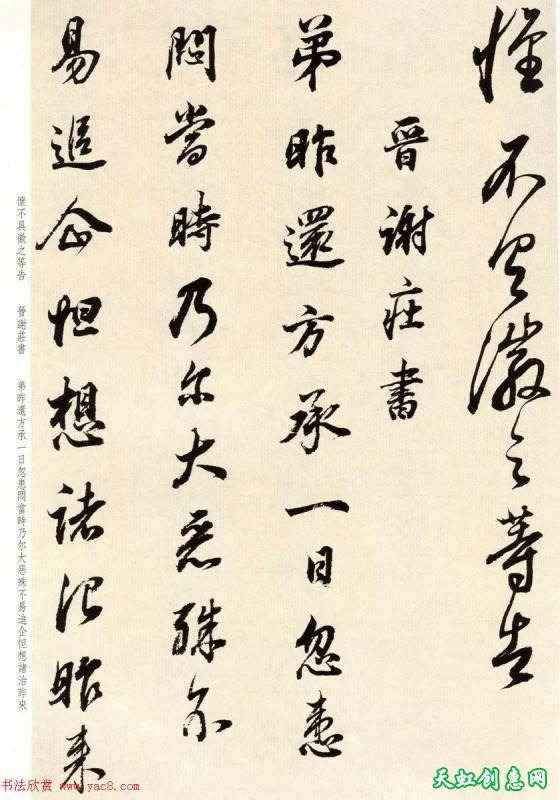 懷不具徽之等告
晉謝莊書
弟昨還方承一日忽患
悶當時乃尔大惡殊不
易追企怛想諸治昨來
懷不具徽之等告　晉謝莊書　弟昨還方承一日忽患悶當時乃尔大惡殊不易追企怛想諸治昨來
书法欣赏 www.yac8.com
天虹创意网